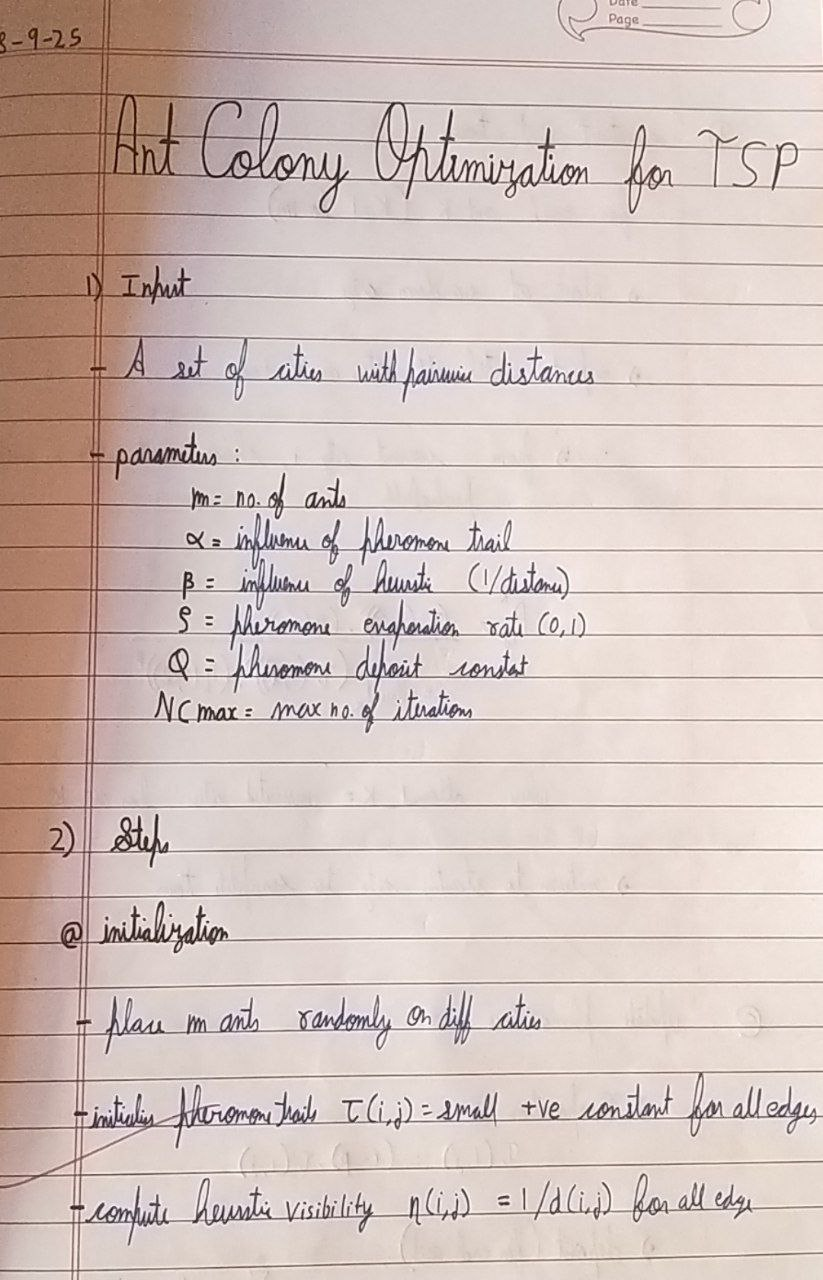 Date
Page
8-9-25
Ant Colony Optimization for TSP
1) Input
- A set of cities with pairwise distances
- parameters :
m = no. of ants
α = influence of pheromone trail
β = influence of heuristic (1/distance)
ρ = pheromone evaporation rate (0,1)
Q = pheromone deposit constat
NC max = max no. of iterations
2) Steps
@ initialization
- place m ants randomly on diff cities
- initialise pheromone trails τ(i,j) = small +ve constant for all edges
- compute heuristic visibility η(i,j) = 1/d(i,j) for all edge